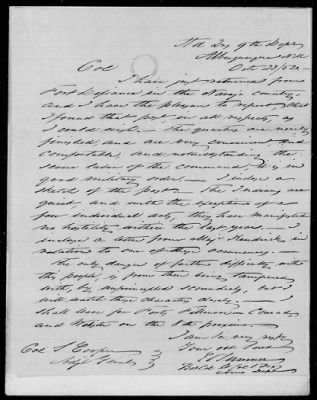 Hd Qrs 9th Dept
Albuquerque N.M.
Oct 23/52
Col
I have just returned from
Fort Defiance in the Navajo country,
and I have the pleasure to report that
I found that post in all respects, as
I could wish. The quarters are nearly
finished, and are very convenient and
comfortable and notwithstanding the
labor of the Command it is in
good military order. I enclose a
sketch of the post. The Indians are
quiet, and with the exception of a
few individual acts, they have manifested
no hostility within the last year. I
enclose a letter from Maj Kendrick in
relation to one of these
The only danger of further difficulty with
this people is from their being tampered
with, by unprincipled scoundrels, but I
will watch these characters closely. I
shall leave for Forts Fillmore Conrad
and Webster on the 8th proximo
I am Sir very respy
Your obt Servt
E V Sumner
Col S Cooper
Adjt Genl